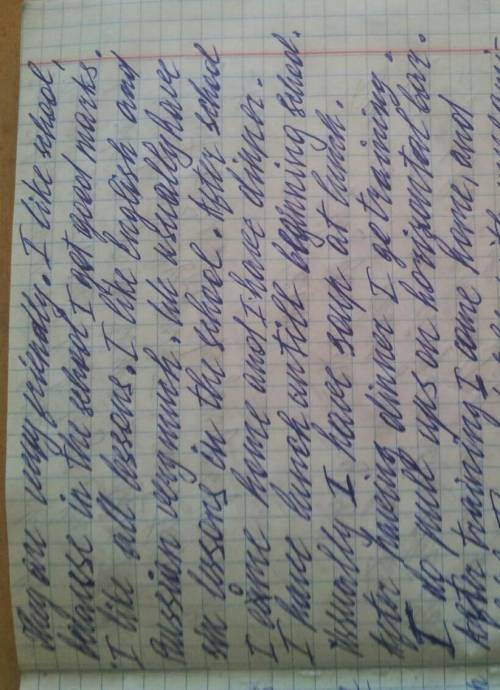 they are very friendly. I like school,
because in the school I got good marks.
I like all lessons. I like English and
Russian very much. We usually have
six lessons in the school. After school
I come home and I have dinner.
I have lunch untill beginning school.
Usually I have soup at lunch.
After having dinner I go training.
I do pull ups on horizontal bar.
After training I came home, and